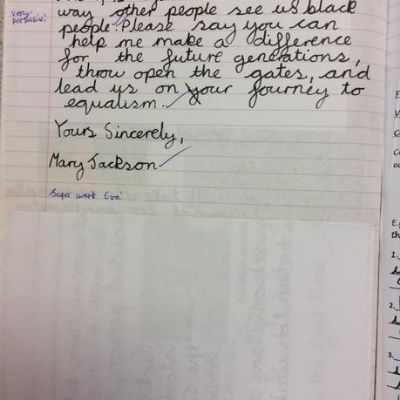 way other people see us black
very persuasive!
people. Please say you can
help me make a difference
for the future generations,
throw open the gates, and
lead us on your journey to
equalism.
Yours Sincerely,
Mary Jackson
Super work Eva!
E.g
th
1.
2.
3.